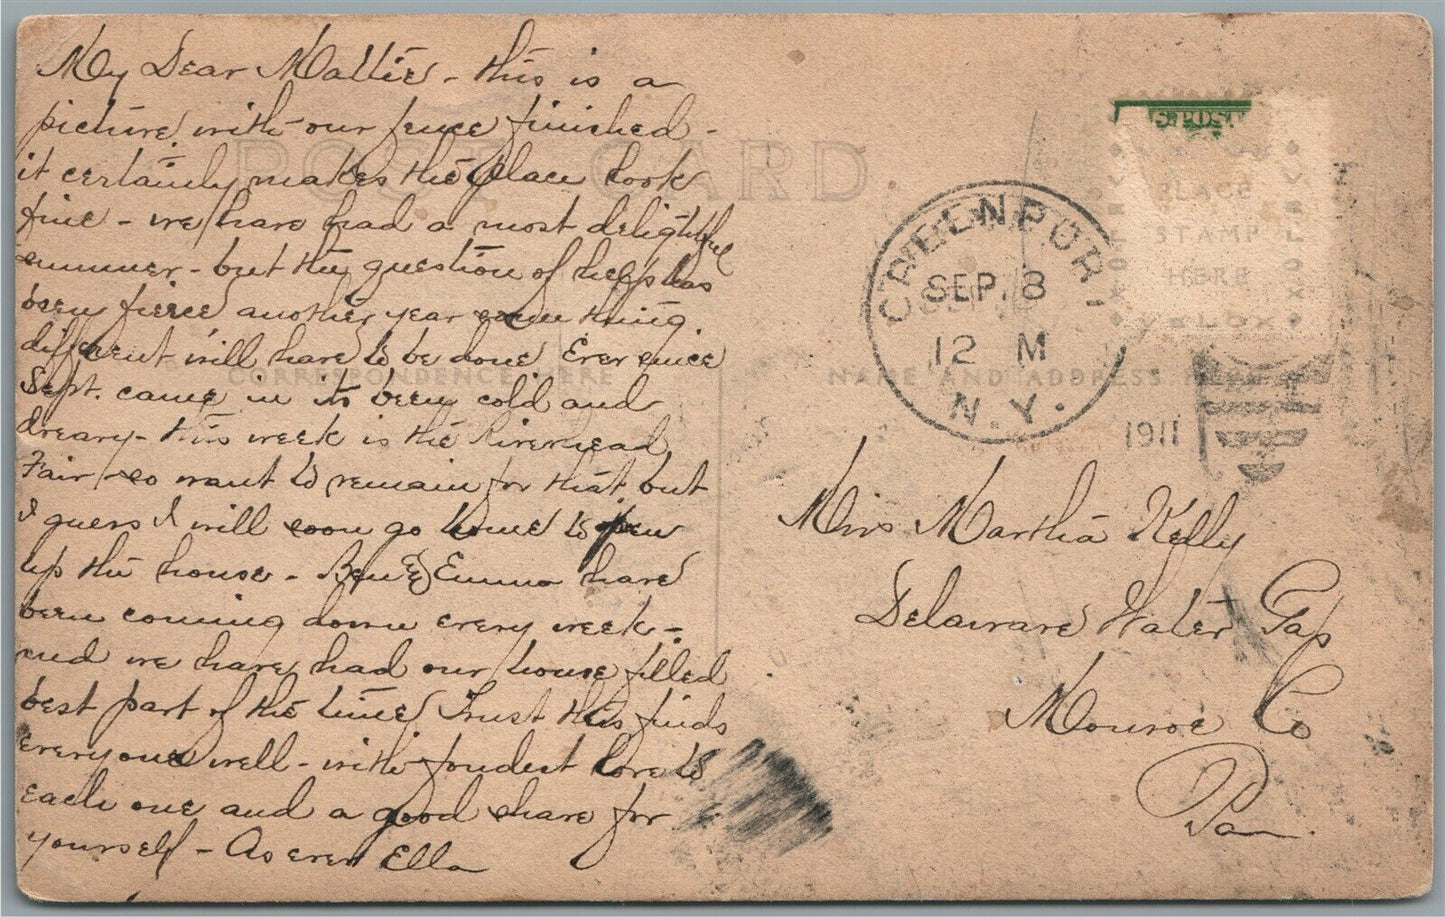 My Dear Mattie - this is a
picture with our fence finished -
it certainly makes the place look
fine - we have had a most delightful
summer - but the question of help has
been fierce another year some thing
different will have to be done. Ever since
Sept. came in its been cold and
dreary - this week is the Riverhead
Fair - so want to remain for that but
I guess I will soon go home to open
up the house - Ben & Emma have
been coming down every week -
and we have had our house filled
best part of the time. Trust this finds
everyone well - with fondest love to
each one and a good share for
yourself - As ever Ella
POST CARD
CORRESPONDENCE HERE
NAME AND ADDRESS HERE
S. POST
VELOX
PLACE
STAMP
HERE
VELOX
GREENPORT
SEP. 8
12 M
N. Y.
1911
Miss Martha Kelly
Delaware Water Gap
Monroe Co
Pa.